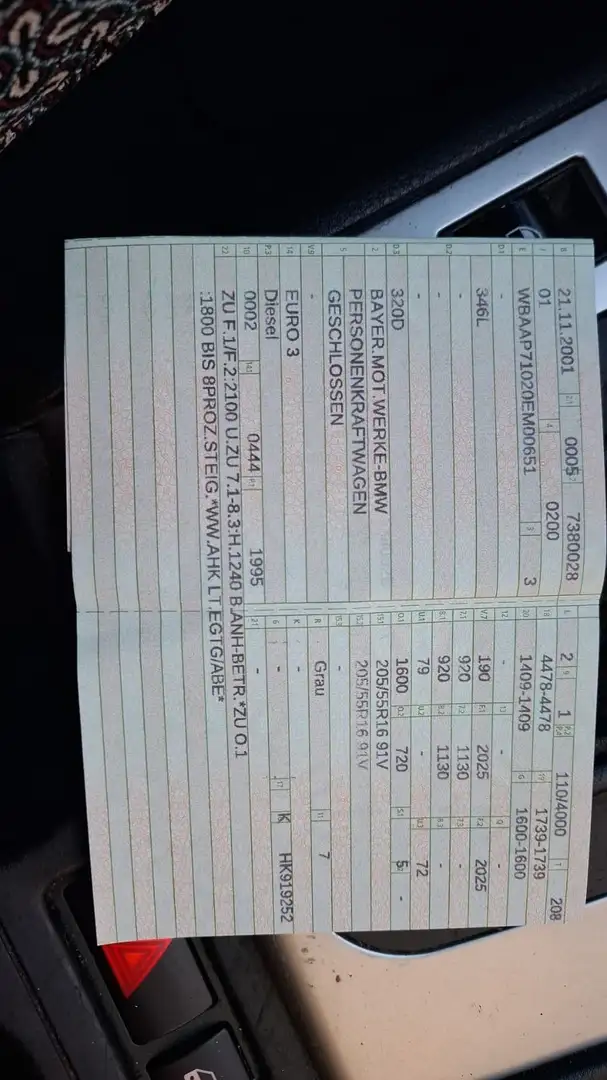 B 21.11.2001 2.1 0005 7380028 L 2 9 1 P.2 P.4 110/4000 T 208
J 01 4 0200 18 4478-4478 19 1739-1739
E WBAAP71020EM00651 3 3 20 1409-1409 G 1600-1600
D.1 - 12 - 13 - Q -
346L V.7 190 F.1 2025 F.2 2025
- 7.1 920 7.2 1130 7.3 -
D.2 - 8.1 920 8.2 1130 8.3 -
- U.1 79 U.2 - U.3 72
D.3 320D O.1 1600 O.2 720 S.1 5 -
2 BAYER.MOT.WERKE-BMW 15.1 205/55R16 91V
PERSONENKRAFTWAGEN 15.2 205/55R16 91V
5 GESCHLOSSEN 15.3 -
V.9 - R Grau 11 7
14 EURO 3 K -
P.3 Diesel 6 - 17 K HK919252
10 0002 14.1 0444 P.1 1995 21 -
22 ZU F.1/F.2:2100 U.ZU 7.1-8.3:H.1240 B.ANH-BETR.*ZU O.1
:1800 BIS 8PROZ.STEIG.*WW.AHK LT.EGTG/ABE*